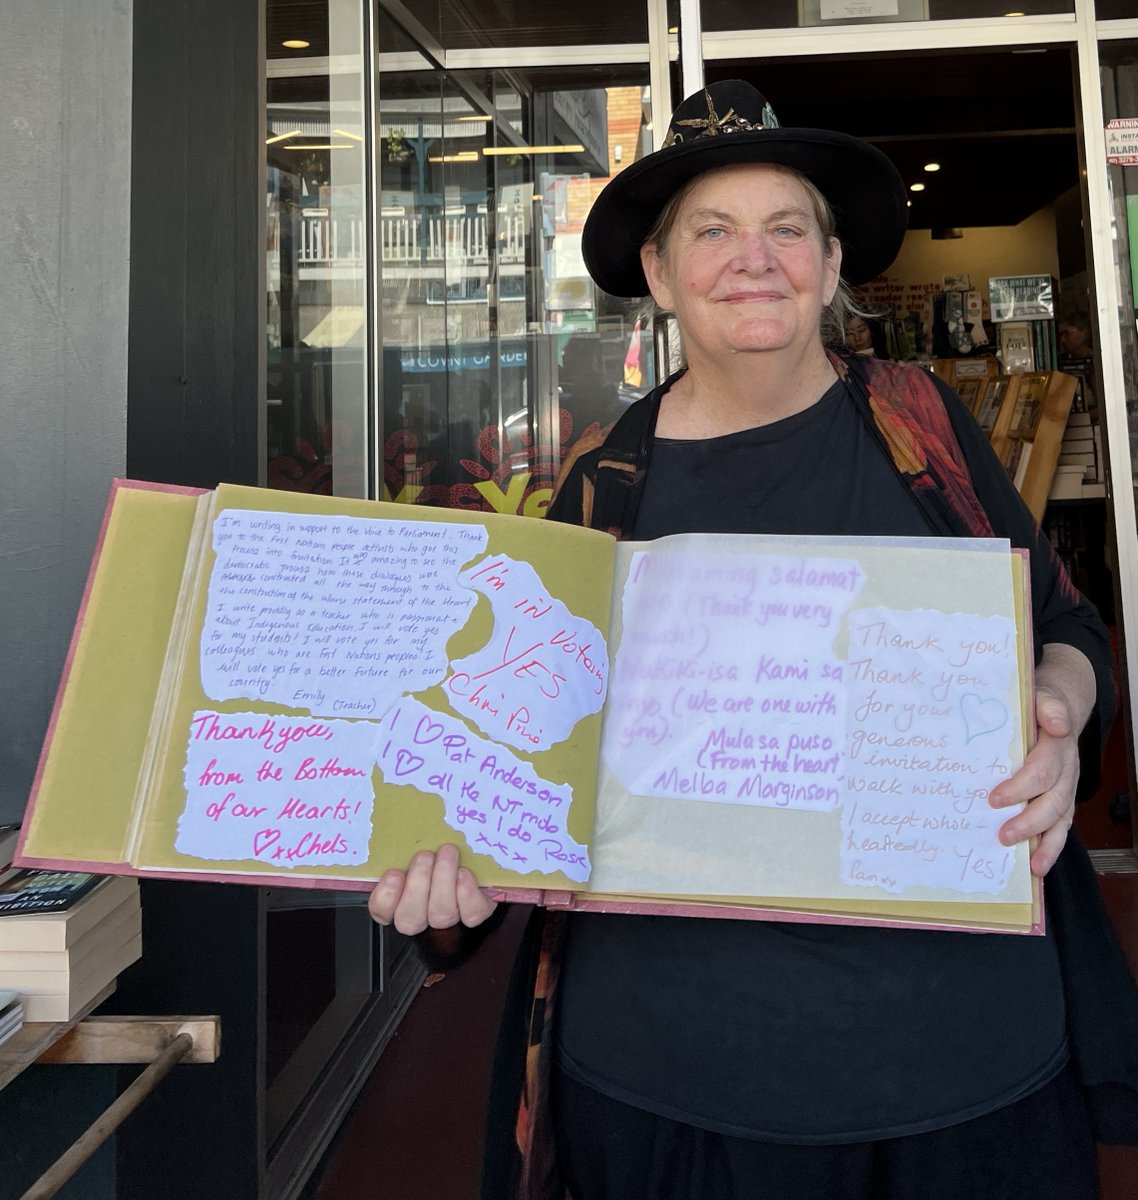 I'm writing in support to the Voice to Parliament. Thank
you to the First Nations people activists who got this
process into fruitation It was amazing to see the
democratic prouss how these dialogues were
constructed all the way through to the
the construction of the uluru statement of the Heart
I write proudly as a teacher who is passionate
about Indigenous Education. I will vote yes
for my students! I will vote yes for my
colleagues who are First Nations peoples! I
will vote yes for a better furture for our
country.
Emily
(Teacher)
I'm in Voting
YES
Thankyou,
from the Bottom
of our Hearts!
♡xxChels.
I ♡ Pat Anderson
I ♡ all the NT mob
yes I do Rosie
xxx
salamat
Thank you very
isa Kami sa
(We are one with
you).
Mula sa puso
(From the heart
Melba Marginson
Thank you!
Thank you
for your
generous
invitation to
walk with yo
I accept whole-
heartedly. Yes!
Pam xx
writer wrote
WARNIN
ALARM
COVNT GARDEN
Ye